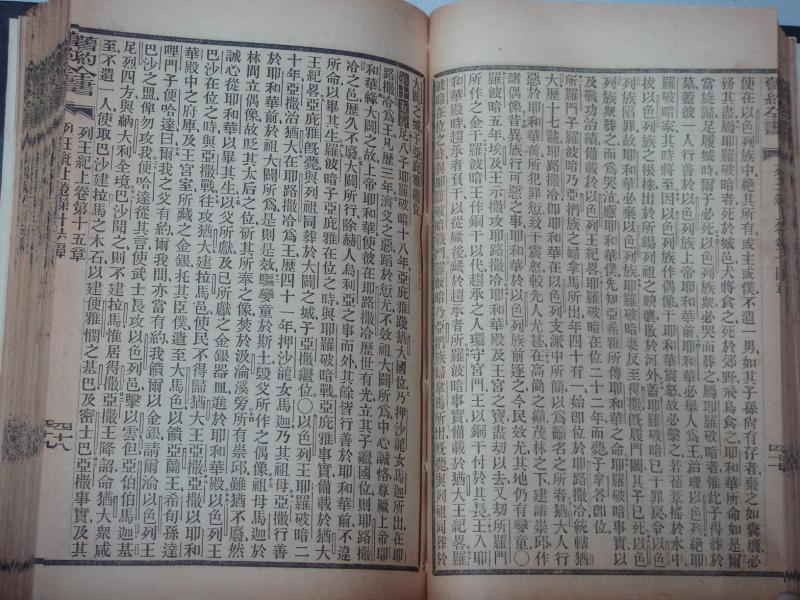 使在以色列族中絕其所有或主或僕不遺一男如其子孫尚有存者棄之如糞壤必
務其盡屬耶羅破暗者死於城邑犬將食之死於郊野飛鳥食之耶和華所命如是爾
當旋歸足履城時爾子必死以色列族衆必哭而葬之屬耶羅破暗者惟此子得葬於
墓蓋彼一人行善於以色列族上帝耶和華前耶和華必舉人為王治理以色列絕耶
羅破暗家其時將至因以色列族作偶像干耶和華震怒故必擊之若葦搖於水中
拔以色列族之根株出於所錫列祖之腴壤散於河外蓋耶羅破暗已干罪戾令以色
列族陷罪故耶和華必棄以色列族耶羅破暗妻反至得撒既履門閾其子已死以色
列族衆葬之而為哭泣應耶和華僕先知亞希雅所傳耶和華之命耶羅破暗事實以
及戰功治績備載於以色列王紀畧耶羅破暗在位二十二年而薨子拿答即位
所羅門子羅波暗乃亞捫族之婦拿馬所出年四十有一始即位於耶路撒冷統轄猶
大歷十七載耶路撒冷即耶和華在以色列支派中所簡以為籲名之所者猶大人行
惡於耶和華前所犯罪愆致干震怒較先人尤甚在高崗之巔茂林之下建諸崇邱作
諸偶像昔異邦人行可惡之事耶和華於以色列族前逐之今民效尤其地仍有孌童〇
羅波暗五年埃及王示撒攻耶路撒冷耶和華殿及王宮之寶盡刼以去又刼所羅門
所作之金干羅波暗王作銅干以代趨承之人環守宮門王以銅干付於其長王入耶
和華殿時趨承者負干以從厥後藏於趨承者所羅波暗事實備載於猶大王紀畧
大闢之城子亞庇雅繼位
尼八子耶羅破暗十八年亞庇雅踐猶大國位乃押沙龍女馬迦所出在耶
路撒冷為王凡歷三年濟父之惡蹈於愆尤不效祖大闢所為中心誠慤尊厥上帝耶
和華緣大闢之故上帝耶和華使彼在耶路撒冷歷世有光立其子繼國位則耶路撒
冷之邑歷久不廢大闢所行除赫人烏利亞之事而外其餘皆行善於耶和華前不違
所命以畢其生羅波暗子亞庇雅在位之時與耶羅破暗戰亞庇雅事實備載於猶大
王紀畧亞庇雅既薨與列祖同葬於大闢之城子亞撒繼位〇以色列王耶羅破暗二
十年亞撒治猶大在耶路撒冷為王歷四十一年押沙龍女馬迦乃其祖母亞撒行善
於耶和華前於祖大闢所為是則是效驅孌童於斯土毀父所作之偶像祖母馬迦於
林間立偶像故貶其太后之位斫其所奉之像焚於汲淪溪旁所有崇邱雖猶不廢然
誠心從耶和華以畢其生以父所獻及己所獻之金銀器皿進於耶和華殿以色列王
巴沙在位之時與亞撒戰攻猶大建拉馬邑使民不得歸猶大王亞撒亞撒以耶和
華殿中之府庫及王宮室所藏之金銀托其臣僕遣至大馬色以饋亞蘭王希旬孫達
哩門子便哈達曰爾我之父有約爾我間亦當有約我餽爾以金銀請爾渝以色列王
巴沙之盟俾勿攻我便哈達從其言使武士長攻以色列邑擊以雲但亞伯伯馬迦基
尼烈四方與納大利全境巴沙聞之則不建拉馬惟居得撒亞撒王降詔命猶大衆咸
至不遺一人使取巴沙建拉馬之木石以建便雅憫之基巴及密士巴亞撒事實及其
舊約全書
列王紀上卷第十五章
四十八